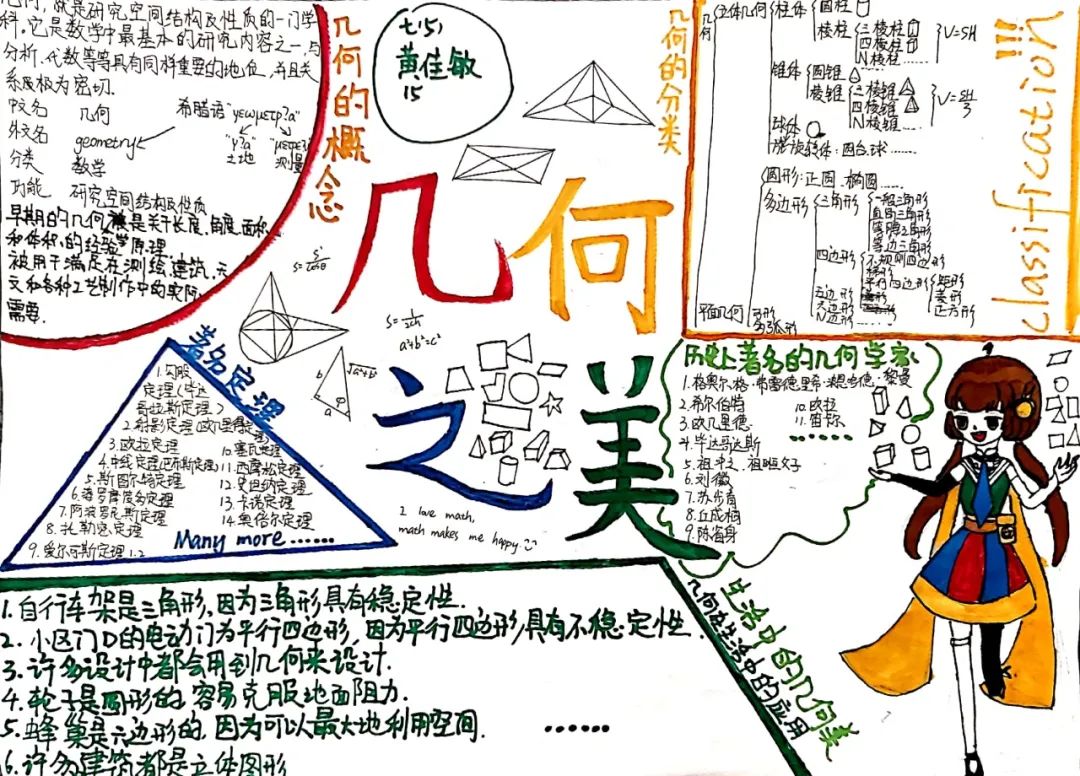 几何，就是研究空间结构及性质的一门学
科。它是数学中最基本的研究内容之一，与
分析、代数等等具有同样重要的地位，并且关
系极为密切.
中文名 几何
外文名 geometry
希腊语"γεωμετρ?α"
"γ?α" 土地
测量
分类 数学
功能 研究空间结构及性质
早期的几何 是关于长度、角度、面积、
和体积的经验 原理
被用于满足在测绘、建筑、天
文和各种工艺制作中的实际
需要.
几何的概念
七(5)
黄佳敏
15
几何的分类
几何
立体几何
柱体
圆柱
棱柱
三棱柱
四棱柱
N棱柱......
V=SH
锥体
圆锥
棱锥
三棱锥
四棱锥
N棱锥......
V=SH/3
球体
旋转体：圆台.球......
平面几何
圆形：正圆.椭圆......
多边形
三角形
一般三角形
直角三角形
等腰三角形
等边三角形
四边形
不规则四边形
梯形
平行四边形
矩形
菱形
正方形
五边形
六边形
N边形......
弓形
多弧形
classification!!!
几何之美
S=
a²+b²=c²
b
a
φ
√a²+b²
I love math,
math makes me happy.
著名定理
1.勾股
定理(毕达
哥拉斯定理)
3.欧拉定理
5.斯图尔特定理
7.阿波罗尼斯定理
9.爱尔可斯定理1.2
10.塞瓦定理
11.西姆松定理
13.卡诺定理
14.奥倍尔定理
Many more ......
历史上著名的几何学家
1.格奥尔格·弗雷德里希·
2.希尔伯特
3.欧几里德
4.毕达哥达斯
5.祖冲之、祖暅父子
6.刘徽
7.苏步青
8.丘成桐
9.陈省身
10.欧拉
11.笛卡尔
......
生活中的几何美
几何在生活中的应用
1.自行车架是三角形，因为三角形具有稳定性.
2.小区门口的电动门为平行四边形，因为平行四边形具有不稳定性.
3.许多设计中都会用到几何来设计.
4.轮子是圆形的.容易克服地面阻力.
5.蜂巢是六边形的.因为可以最大地利用空间.
......
6.许多建筑都是立体图形